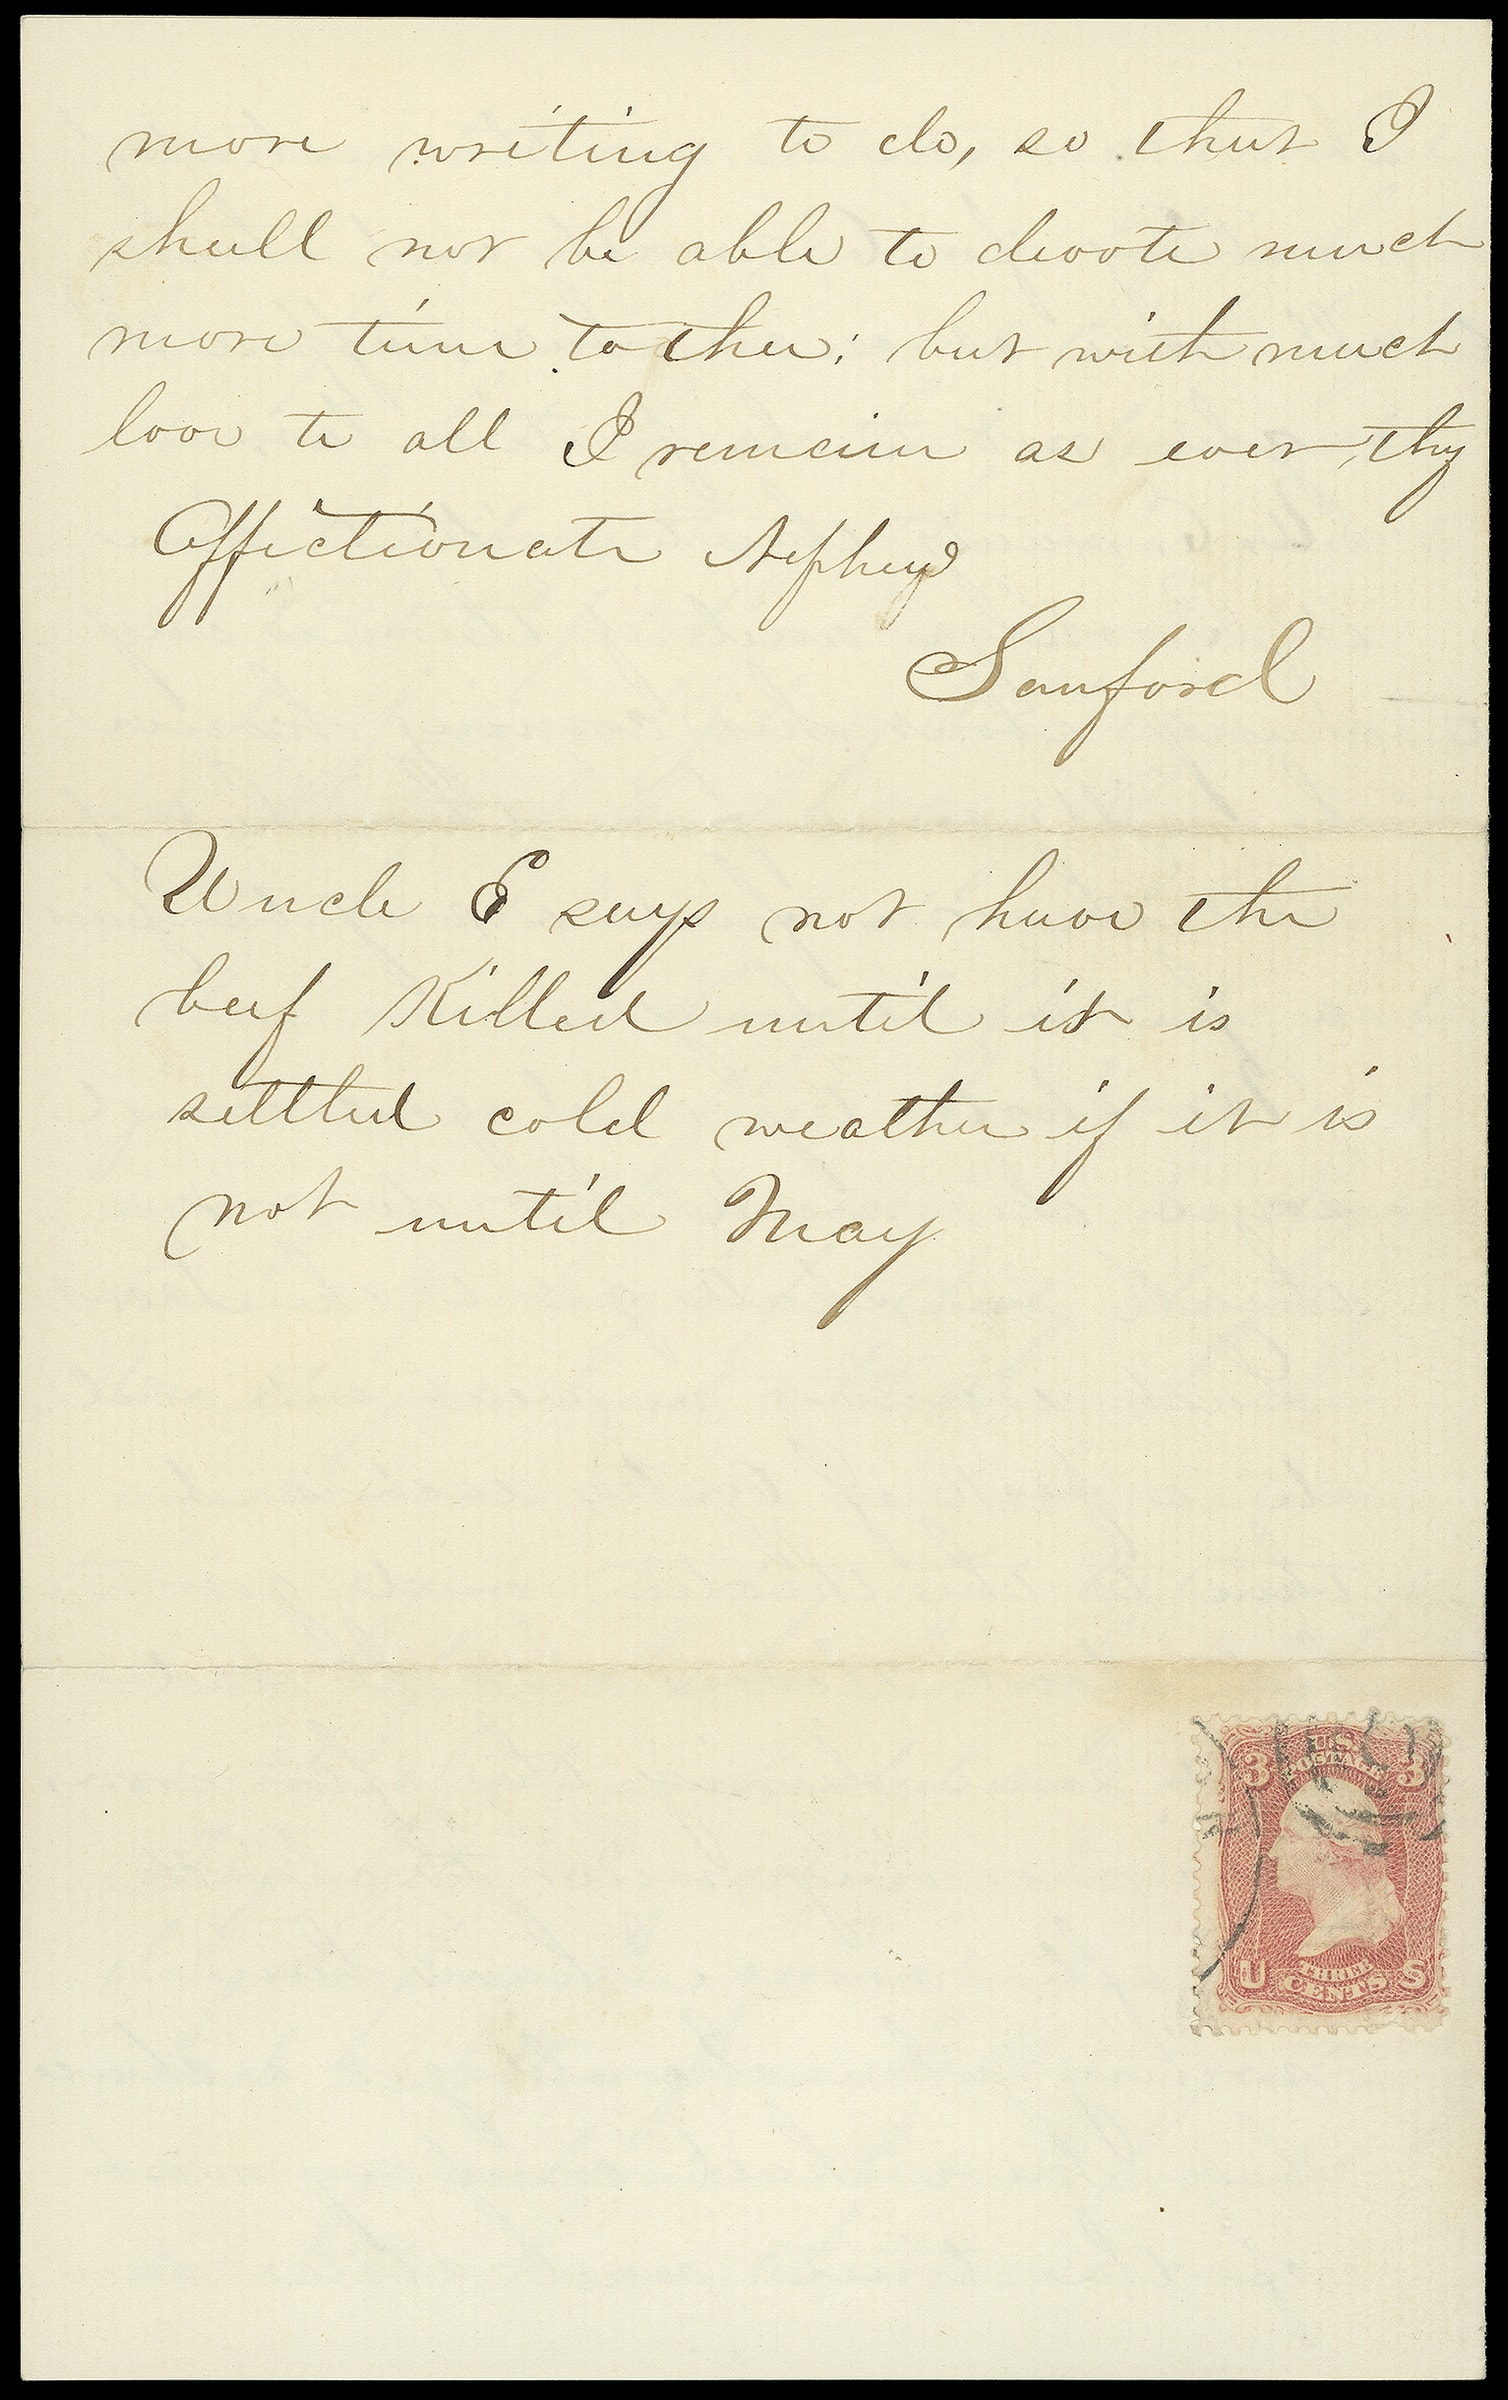 more writing to do, so that I
shall not be able to devote much
more time to thee; but with much
love to all I remain as ever, thy
Affectionate Nephew
Sanford
Uncle E says not have the
beef Killed until it is
settled cold weather if it is
not until May
U.S.
POSTAGE
3 3
U THREE S
CENTS